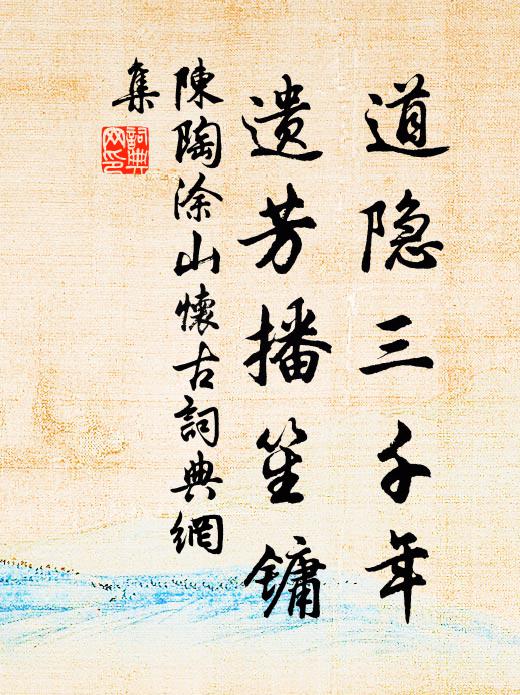 道隐三千年
遗芳播笙镛
陳陶涂山懷古詞典網
集
詞典網印